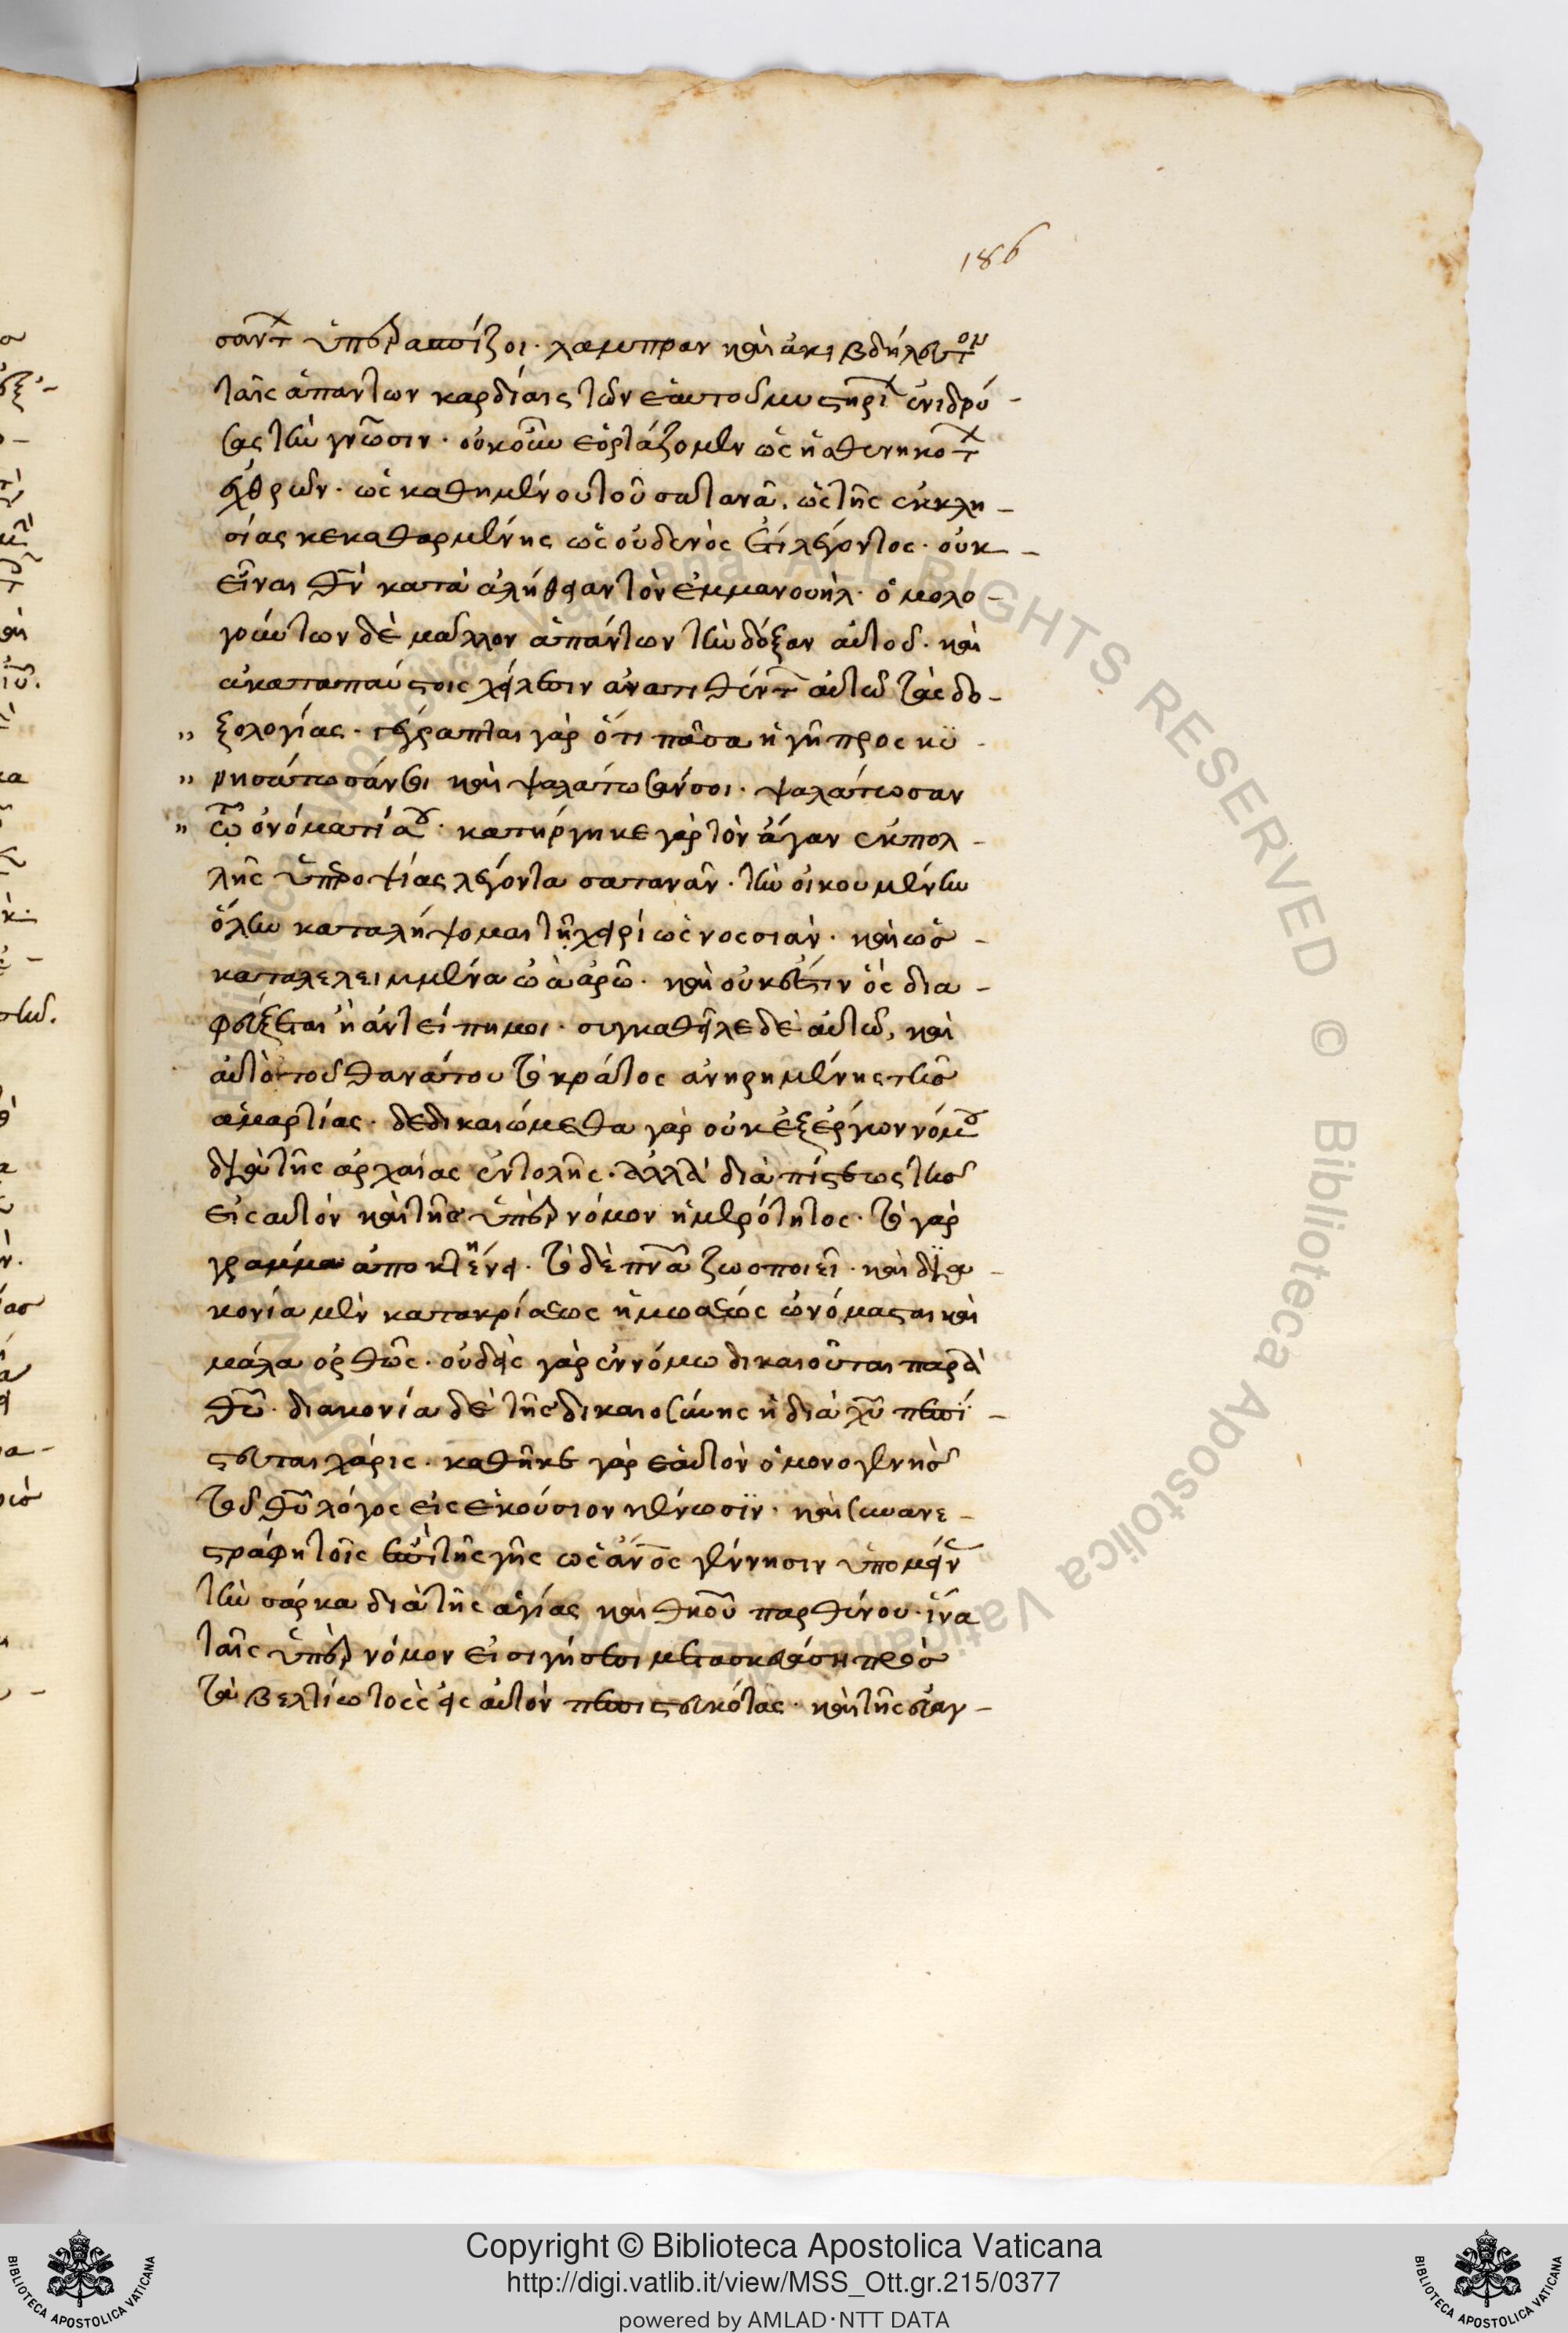 186
σαντ ὑπερασπίζοι· λαμπραν καὶ ἀκιβδήλευτον
ταῖς ἁπάντων καρδίαις τῶν ἑαυτοῦ μυστηρί ἐνιδρύ-
σας τὴν γνῶσιν· οὐκοῦν ἑορτάζομεν ὡς ἠσθενηκότ
ἐχθρῶν· ὡς καθημένου τοῦ σατανᾶ, ὡς τῆς ἐκκλη-
σίας κεκαθαρμένης ὡς οὐδενὸς ἔτι λέγοντος· οὐκ
εἶναι θν κατὰ ἀλήθειαν τὸν ἐμμανουὴλ· ὁμολο-
γούντων δὲ μᾶλλον ἁπάντων τὴν δόξαν αὐτοῦ· καὶ
ἀκαταπαύστοις χείλεσιν ἀνατιθέντ αὐτῶ τὰς δο-
" ξολογίας· γέγραπται γὰρ ὅτι πᾶσα ἡ γῆ προσκυ-
" νησάτωσάν σοι καὶ ψαλάτωσάν σοι· ψαλάτωσαν
" τῶ ὀνόματί σου· κατήργηκε γὰρ τὸν ἄγαν ἐκ πολ-
λῆς ὑπεροψίας λέγοντα σατανᾶν· τὴν οἰκουμένην
ὅλην καταλήψομαι τῇ χειρὶ ὡς νοσσιὰν· καὶ ὡς
καταλελειμμένα ὠὰ ἀρῶ· καὶ οὐκ ἔστιν ὃς δια-
φεύξεται ἢ ἀντείπη μοι· συγκαθεῖλε δὲ αὐτῶ, καὶ
αὐτὸ τοῦ θανάτου τὸ κράτος ἀνηρημένης τῆς
ἁμαρτίας· δεδικαιώμεθα γὰρ οὐκ ἐξ ἔργων νόμου
διὰ τῆς ἀρχαίας ἐντολῆς· ἀλλὰ διὰ πίστεως τῆς
εἰς αὐτὸν καὶ τῆς ὑπὲρ νόμον ἡμερότητος· τὸ γὰρ
γράμμα ἀποκτένει· τὸ δὲ πνα ζωοποιεῖ· καὶ δια-
κονία μὲν κατακρίσεως ἡ μωσέως ὠνόμασται καὶ
μάλα ὀρθῶς· οὐδεὶς γὰρ ἐν νόμω δικαιοῦται παρὰ
θω· διακονία δὲ τῆς δικαιοσύνης ἡ διὰ χυ πεπί-
στευται χάρις· καθῆκε γὰρ ἑαυτὸν ὁ μονογενὴς
τοῦ θυ λόγος εἰς ἑκούσιον κένωσιν· καὶ συνανε-
στράφη τοῖς ἐπὶ τῆς γῆς ὡς ανος γέννησιν ὑπομείν
τὴν σάρκα διὰ τῆς ἁγίας καὶ θκου παρθένου· ἵνα
ταῖς ὑπὲρ νόμον εἰσηγήσεσι μετασκευάση πρὸς
τὰ βελτίω τοὺς εἰς αὐτὸν πεπιστευκότας· καὶ τῆς εὐαγ-
Copyright © Biblioteca Apostolica Vaticana
http://digi.vatlib.it/view/MSS_Ott.gr.215/0377
powered by AMLAD·NTT DATA